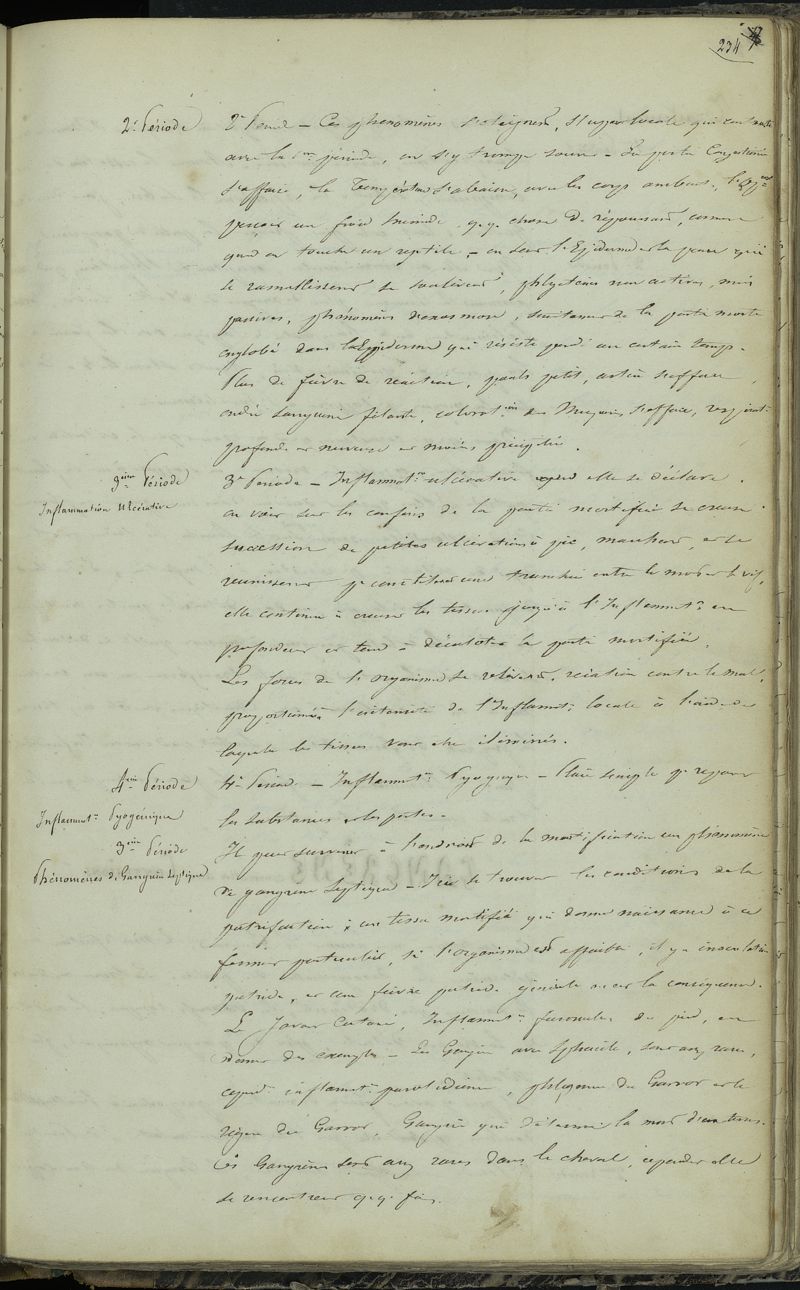 234
2e Période
2e Périod — Ces phénomènes s'éteignent, stupeur locale qui contraste
avec la 1ère période, on s'y trompe souvent — La partie Congestionnée
s'affaisse, la Température s'abaisse, avec les corps ambiants,
un froid humide q.q. chose de repoussant, comme
quand on touche un reptile, — on sent l'Epiderme et la peau qui
se ramollissent se soulèvent, phlyctènes non actives, mais
passives, phénomènes d'exosmose, suintement de la partie morte
englobé dans l'Epiderme qui résiste pendt un certain temps.
Plus de fièvre de réaction, pouls petit, artère s'efface,
ondée sanguine filante, colorat.ion des Muqueuses s'efface, respirat.
profonde et nerveuse et moins précipitée.
3ème Période
Inflammation Ulcérative
3e Periode — Inflammat.on ulcérative quand elle se déclare.
on voit sur les confins de la partie mortifiée se creuser
succession de petites ulcérations à pic, marchent, et se
réunissent pr constituer une tranchée entre le mort et le vif,
elle continue à creuser les tissus jusqu'à l'Inflammat.n en
profondeur et tend à décoller la partie mortifiée.
Les forces de l'organisme se relèvent, réaction contre le mal,
proportionnée à l'intensité de l'Inflammat.n locale à l'aide de
laquelle les tissus vont être éliminés.
4ème Période
Inflammat.n Pyogénique
4e Périod. — Inflammat.n Pyogénique — Plaie simple pr réparer
les substances et les pertes.
3ème Période
Phénomènes de Gangrène Septique
Il peut survenir à l'endroit de la mortification un phénomène
de gangrène septique — Ici se trouvent les conditions de la
putréfaction ; un tissu mortifié qui donne naissance à ce
ferment particulier, si l'organisme est affaibli, il y a inoculation
putride, et une fièvre putride générale en est la conséquence.
Le Javart Cutané, Inflammat.n furonculeuse du pied, en
donne des exemples — Les Gangrènes avec Sphacèle, sont assez rares,
cepend.t inflammat.n parotidienne, phlegmon du Garrot et la
région du Garrot, Gangrène qui détermine la mort d'un tissu.
Ces Gangrènes sont assez rares dans le cheval, cependant elles
se rencontrent q.q. fois.